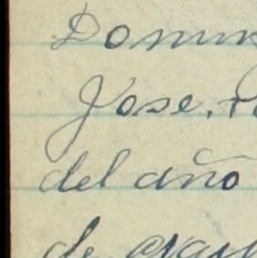 Domin
Jose.
del año
de